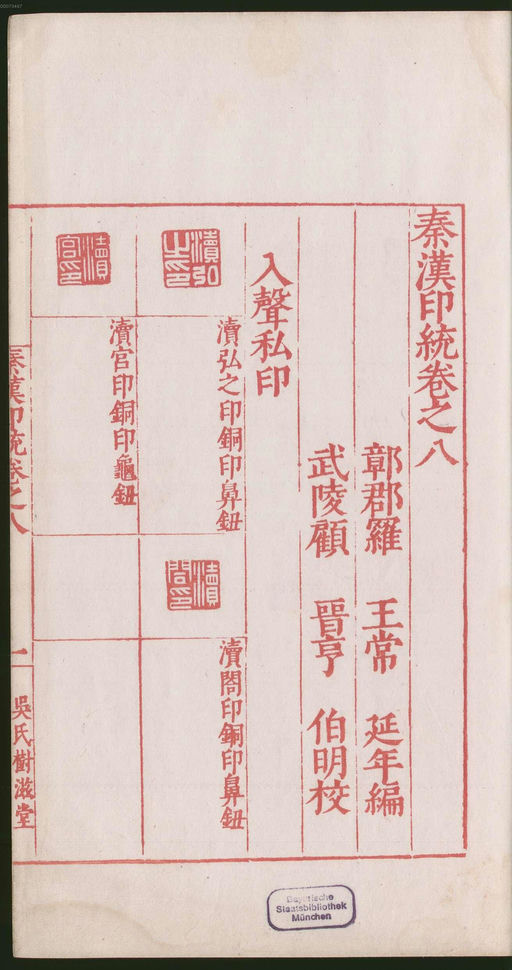 秦漢印統卷之八
鄣郡羅 王常 延年編
武陵顧 晉亨 伯明校
入聲私印
瀆弘之印
瀆弘之印銅印鼻鈕
瀆閤印
瀆閤印銅印鼻鈕
瀆官印
瀆官印銅印龜鈕
秦漢印統卷之八
一
吳氏樹滋堂
Bayerische
Staatsbibliothek
München
00073447